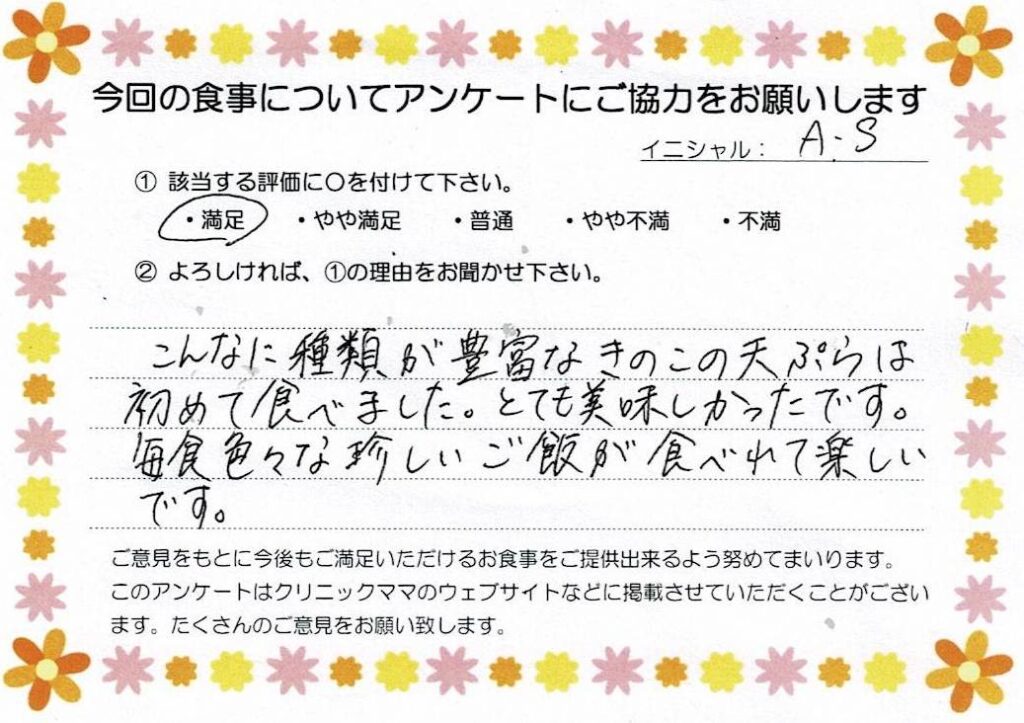 今回の食事についてアンケートにご協力をお願いします
イニシャル： A.S
① 該当する評価に〇を付けて下さい。
・満足 ・やや満足 ・普通 ・やや不満 ・不満
② よろしければ、①の理由をお聞かせ下さい。
こんなに種類が豊富なきのこの天ぷらは
初めて食べました。とても美味しかったです。
毎食色々な珍しいご飯が食べれて楽しい
です。
ご意見をもとに今後もご満足いただけるお食事をご提供出来るよう努めてまいります。
このアンケートはクリニックママのウェブサイトなどに掲載させていただくことがござい
ます。たくさんのご意見をお願い致します。